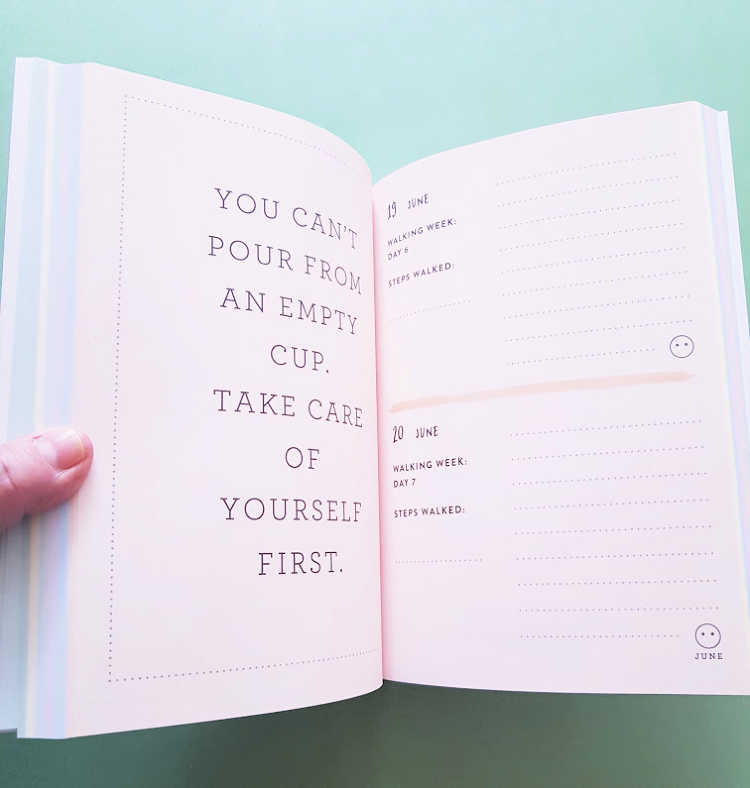 YOU CAN'T
POUR FROM
AN EMPTY
CUP.
TAKE CARE
OF
YOURSELF
FIRST.
19 JUNE
WALKING WEEK:
DAY 6
STEPS WALKED:
20 JUNE
WALKING WEEK:
DAY 7
STEPS WALKED:
JUNE